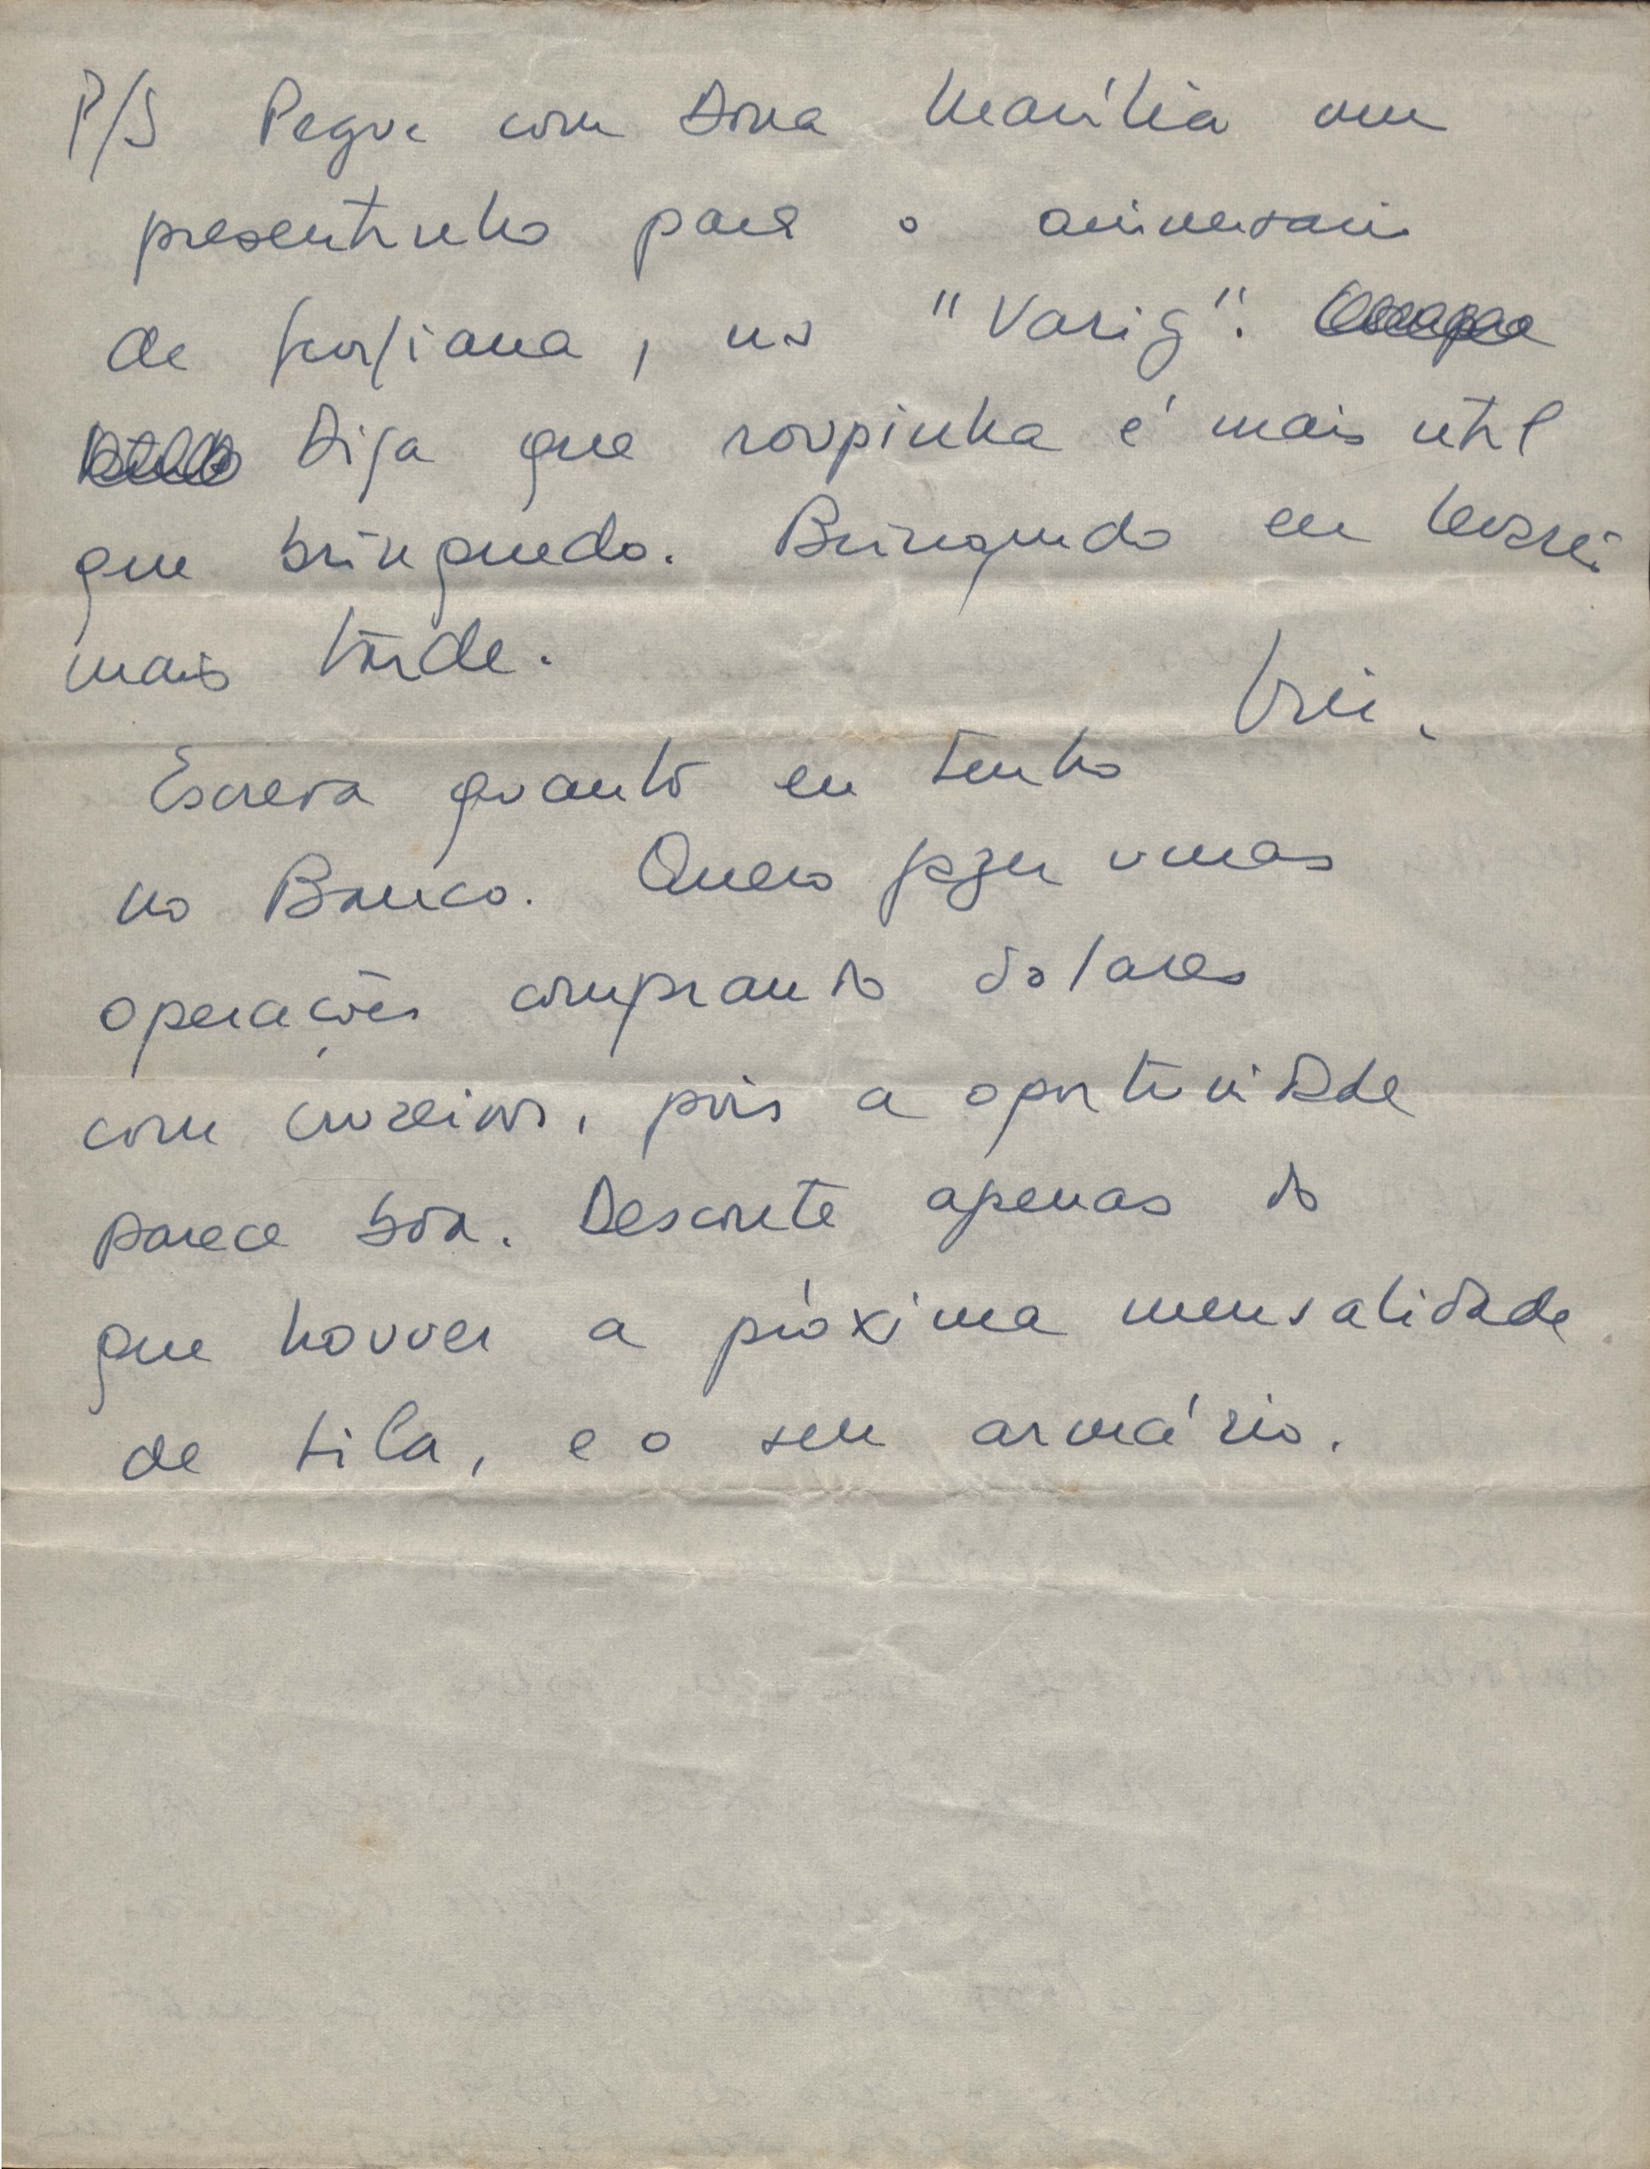 P/S Pegue com Dona Marília um
presentinho para o aniversario
de , na "Varig".
Diga que roupinha é mais util
que brinquedo. Brinquedo eu levarei
mais tarde.
Escreva quanto eu tenho
no Banco. Quero fazer umas
operações comprando dolares
com cruzeiros, pois a oportunidade
parece boa. Desconte apenas do
que houver a próxima mensalidade
de Lila, e o seu armário.